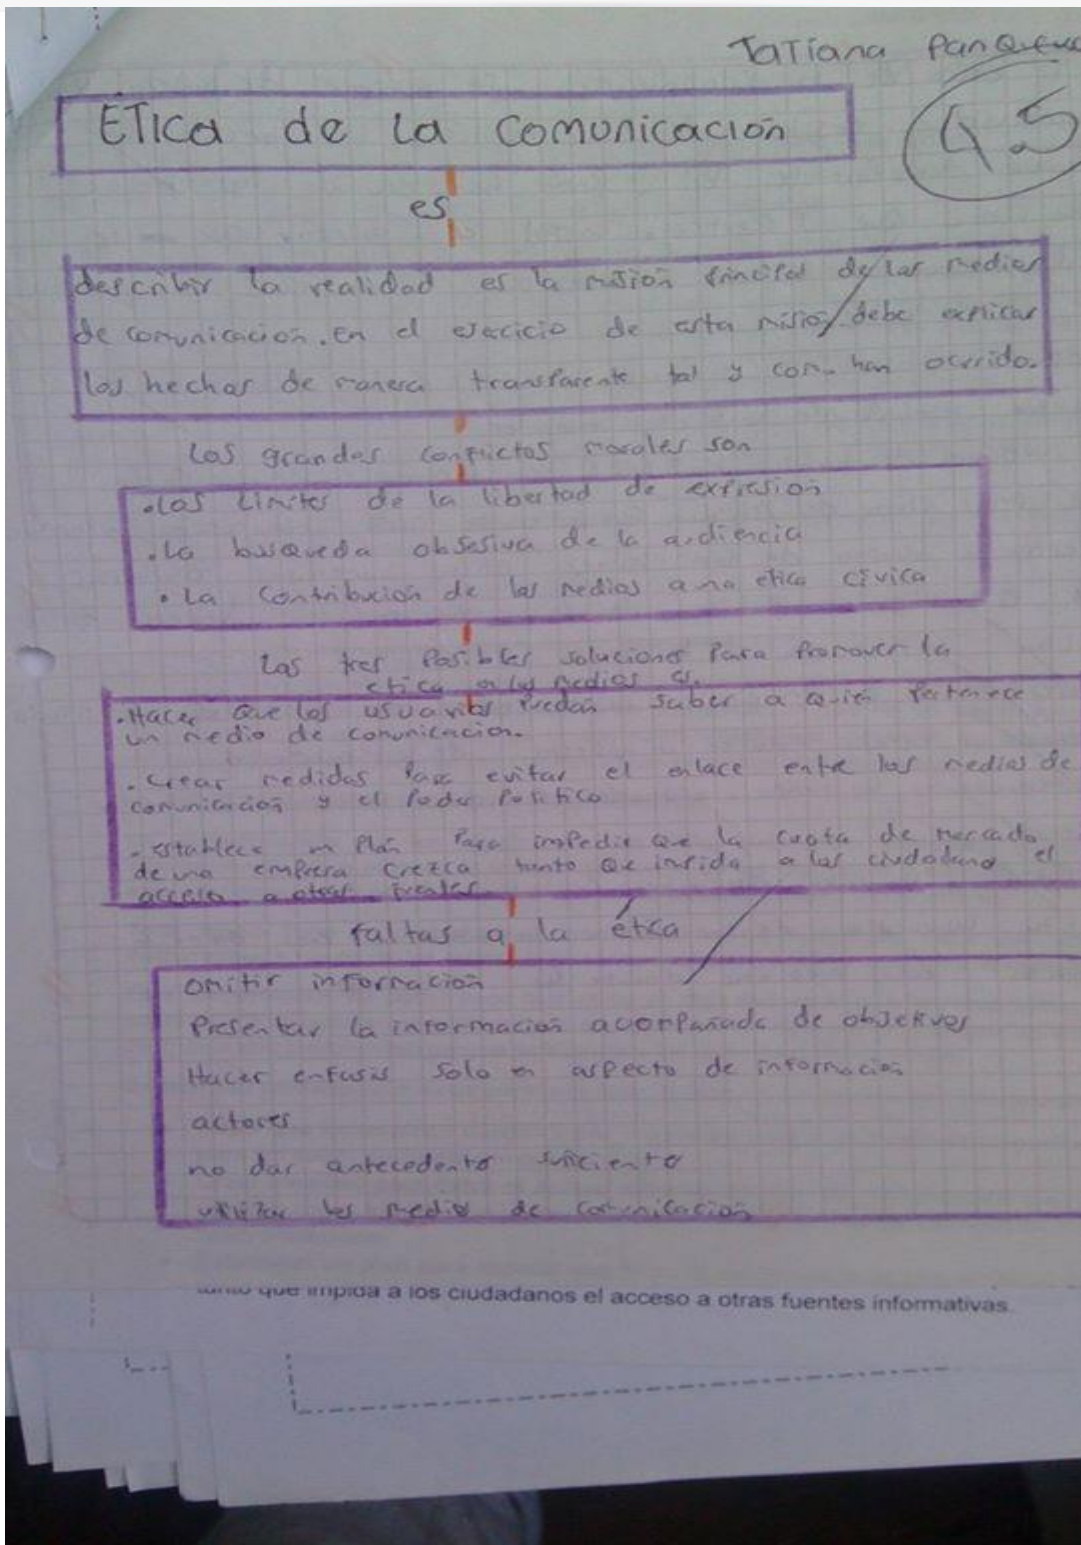 Tatiana
4.5
ÉTica de la comunicación
es
describir la realidad es la misión principal de los medios
de comunicación. en el ejecicio de esta misión debe explicar
los hechos de manera transparente tal y como han ocurrido.
los grandes conflictos morales son
•los limites de la libertad de expresión
•la busqueda obsesiva de la audiencia
•la contribución de los medios a una etica civica
las tres posibles soluciones para promover la
etica en los medios es.
•Hacer que los usuarios puedan saber a quién pertenece
un medio de comunicacion.
•crear medidas para evitar el enlace entre los medios de
comunicación y el poder politico
-establece un plan para impedir que la cuota de mercado
de una empresa crezca tanto que impida a los ciudadano el
acceso a otras fuentes
faltas a la ética
omitir información
Presentar la información acompañada de objetivos
Hacer enfasis solo en aspecto de información
actores
no dar antecedente suficiente
utilizar los medio de comunicación
tanto que impida a los ciudadanos el acceso a otras fuentes informativas.